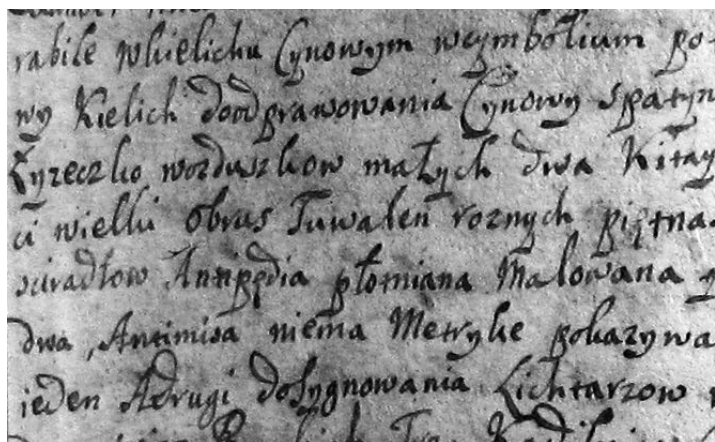 rabile wkielichu Cynowym wcymbolium po-
wy Kielich doodprawowania Cynowy spatyn
Łyzeczko wozduszkow małych dwa Kitay
ci wielki obrus Tuwalen roznych piętna
scieradłow Antipędia płomiana Malowana
dwa, Antimisa niema Metryke pokazywa
ieden Adrugi dosygnowania Lichtarzow